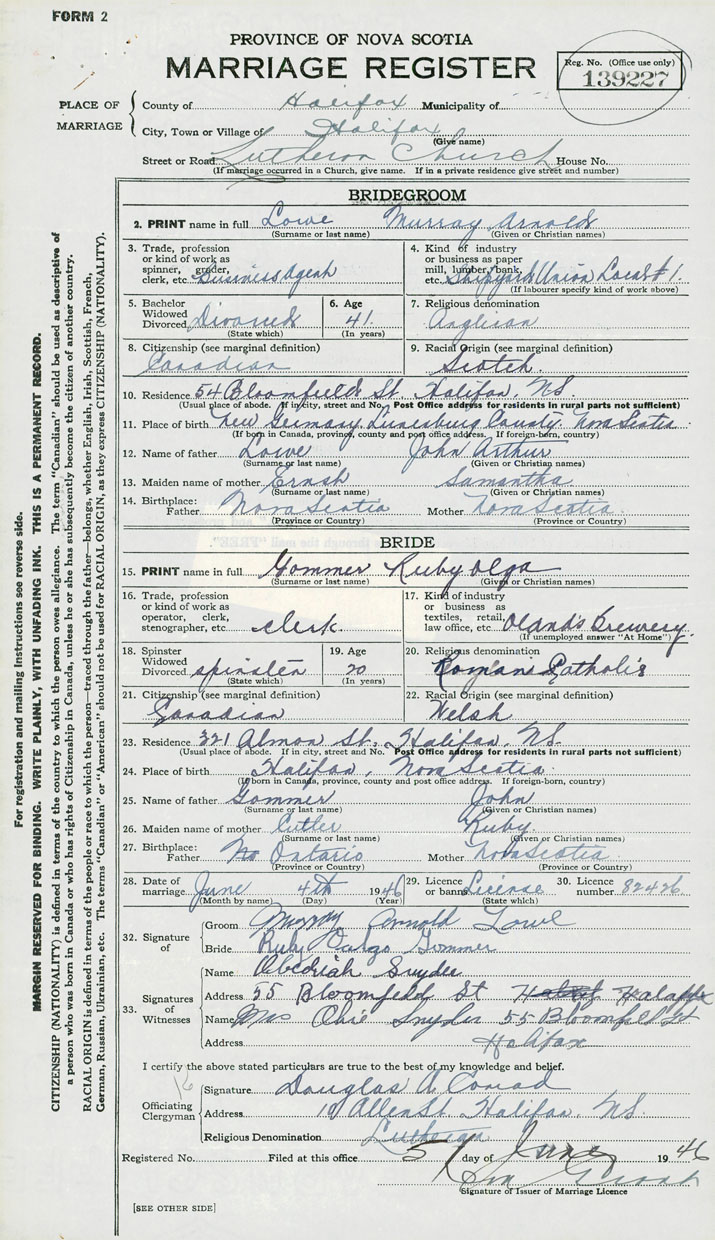 FORM 2
PROVINCE OF NOVA SCOTIA
MARRIAGE REGISTER
Reg. No. (Office use only)
139227
PLACE OF MARRIAGE
County of Halifax Municipality of
City, Town or Village of Halifax
(Give name)
Street or Road Lutheran Church House No.
(If marriage occurred in a Church, give name. If in a private residence give street and number)
BRIDEGROOM
2. PRINT name in full Lowe Murray Arnold
(Surname or last name) (Given or Christian names)
3. Trade, profession or kind of work as spinner, grader, clerk, etc. Business Agent
4. Kind of industry or business as paper mill, lumber, bank, etc. Shipyard Union Local #1.
(If labourer specify kind of work above)
5. Bachelor Widowed Divorced Divorced
(State which)
6. Age 41
(In years)
7. Religious denomination
Anglican
8. Citizenship (see marginal definition)
Canadian
9. Racial Origin (see marginal definition)
Scotch.
10. Residence 54 Bloomfield St. Halifax, NS
(Usual place of abode. If in city, street and No. Post Office address for residents in rural parts not sufficient)
11. Place of birth New Germany, Lunenburg County. Nova Scotia
(If born in Canada, province, county and post office address. If foreign-born, country)
12. Name of father Lowe John Arthur
(Surname or last name) (Given or Christian names)
13. Maiden name of mother Samantha
(Surname or last name) (Given or Christian names)
14. Birthplace: Father Nova Scotia Mother Nova Scotia.
(Province or Country) (Province or Country)
BRIDE
15. PRINT name in full Gommer Ruby Olga
(Surname or last name) (Given or Christian names)
16. Trade, profession or kind of work as operator, clerk, stenographer, etc. clerk.
17. Kind of industry or business as textiles, retail, law office, etc. Oland's Brewery.
(If unemployed answer "At Home")
18. Spinster Widowed Divorced spinster
(State which)
19. Age 20
(In years)
20. Religious denomination
Roman Catholic
21. Citizenship (see marginal definition)
Canadian
22. Racial Origin (see marginal definition)
Welsh
23. Residence 321 Almon St., Halifax, NS.
(Usual place of abode. If in city, street and No. Post Office address for residents in rural parts not sufficient)
24. Place of birth Halifax, Nova Scotia.
(If born in Canada, province, county and post office address. If foreign-born, country)
25. Name of father Gommer John
(Surname or last name) (Given or Christian names)
26. Maiden name of mother Cutler Ruby.
(Surname or last name) (Given or Christian names)
27. Birthplace: Father Ontario Mother Nova Scotia.
(Province or Country) (Province or Country)
28. Date of marriage June 4th 1946
(Month by name) (Day) (Year)
29. Licence or banns License
(State which)
30. Licence number 82426
32. Signature of
Groom Murray Arnold Lowe
Bride Ruby Gommer
33. Signatures of Witnesses
Name Obediah Snyder
Address 55 Bloomfield St Halifax
Name Mrs Obie Snyder 55 Bloomfield St
Address Halifax
I certify the above stated particulars are true to the best of my knowledge and belief.
Officiating Clergyman
Signature Douglas A. Conrad
Address 19 Allen St. Halifax, NS.
Religious Denomination Lutheran
Registered No. Filed at this office 5 day of June 1946
Signature of Issuer of Marriage Licence
[SEE OTHER SIDE]
For registration and mailing instructions see reverse side.
MARGIN RESERVED FOR BINDING. WRITE PLAINLY, WITH UNFADING INK. THIS IS A PERMANENT RECORD.
CITIZENSHIP (NATIONALITY) is defined in terms of the country to which the person owes allegiance. The term "Canadian" should be used as descriptive of
a person who was born in Canada or who has rights of Citizenship in Canada, unless he or she has subsequently become the citizen of another country.
RACIAL ORIGIN is defined in terms of the people or race to which the person—traced through the father—belongs, whether English, Irish, Scottish, French,
German, Russian, Ukrainian, etc. The terms "Canadian" or "American" should not be used for RACIAL ORIGIN, as they express CITIZENSHIP (NATIONALITY).